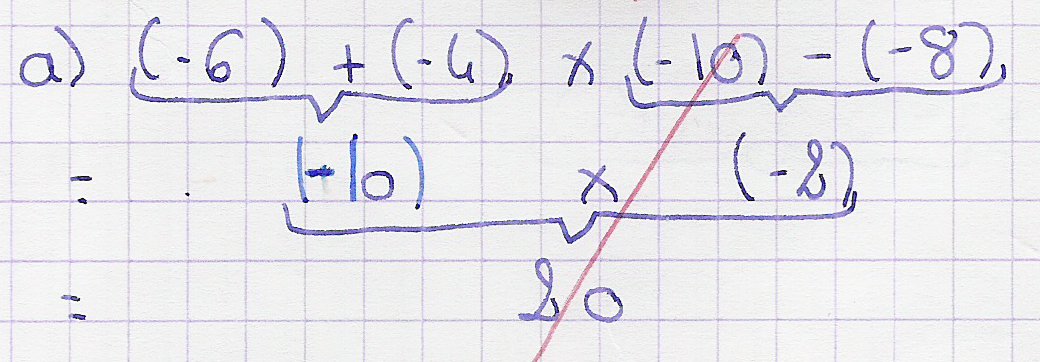 a) (-6) + (-4) × (-10) - (-8)
= (-10) × (-2)
= 20